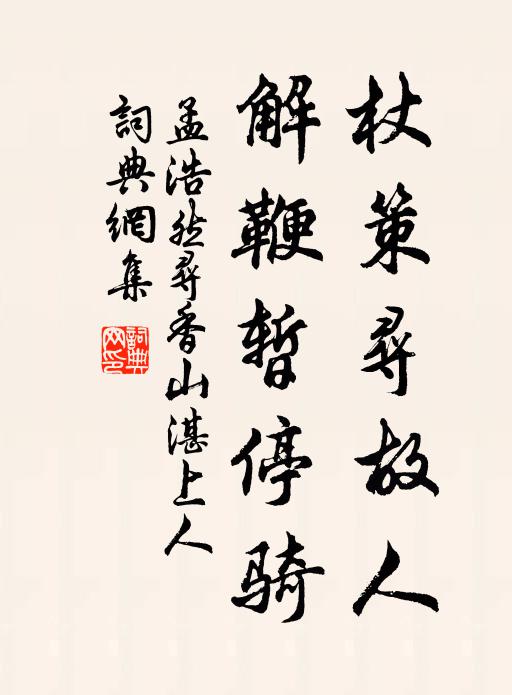 杖策尋故人
解鞭暫停骑
孟浩然尋香山湛上人
詞典網集
詞典網印